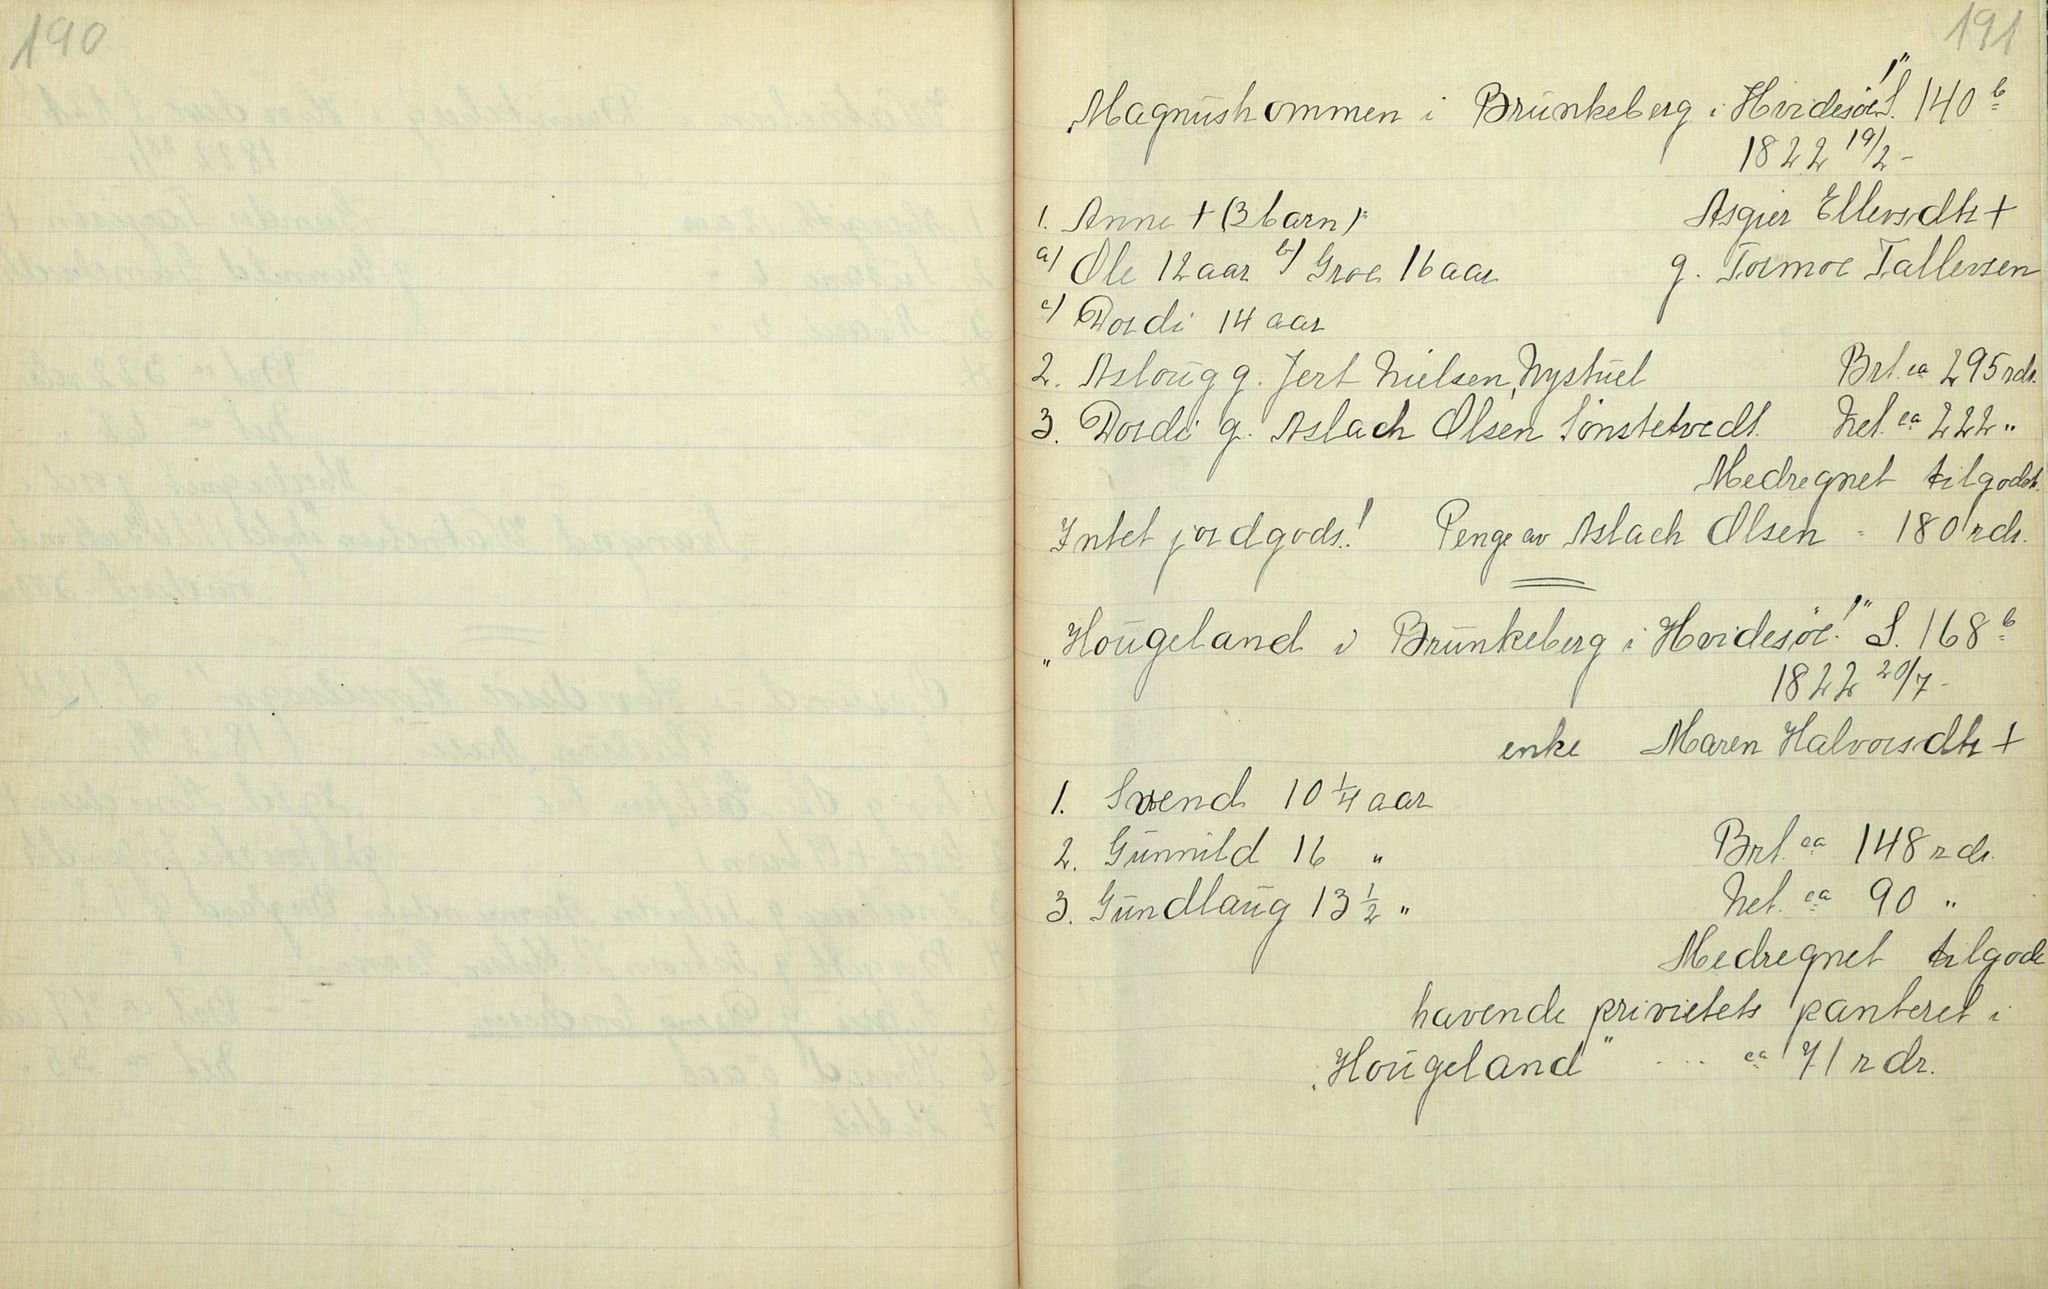 190
191
„Magnushommen i Brünkeberg i Hvidesöe!" S. 140 b
1822 19/2 -
1. Anne + (3 barn)
Asgier Ellevsdtr +
a) Ole 12 aar b) Groe 16 aar
g. Tormoe Tallevsen
c) Dordi 14 aar
2. Asloüg g. Jert Nielsen, Nystüel
Brt. ca 295 rdr.
3. Dordi g. Aslach Olsen Sönstetvedt.
Net. ca 222 "
Medregnet tilgodeh.
Intet jordgods! Penge av Aslach Olsen = 180 rdr.
„Hoügeland i Brünkeberg i Hvidesöe!" S. 168 b
1822 20/7 -
enke Maren Halvorsdtr +
1. Svend 10 1/4 aar
2. Günnild 16 "
Brt. ca 148 rdr.
3. Gündlaüg 13 1/2 "
Net. ca 90 "
Medregnet tilgode
havende privitets panteret i
„Hoügeland" ... ca 71 rdr.